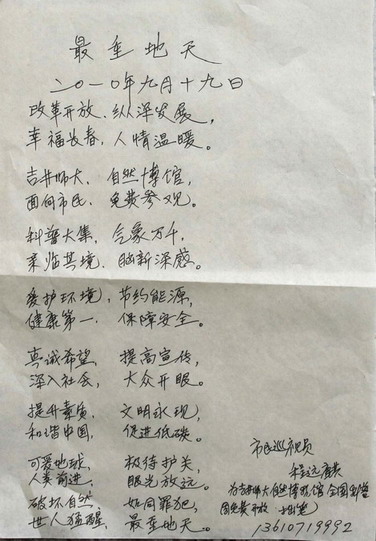 最重地天
二〇一〇年九月十九日
改革开放、纵深发展,
幸福长春,人情温暖。
吉林师大,自然博馆,
面向市民、免费参观。
科普大集,气象万千,
亲临其境、脑新深感。
爱护环境,节约能源,
健康第一、保障安全。
真诚希望,提高宣传,
深入社会,大众开眼。
提升素质,文明永现,
和谐中国,促进低碳。
可爱地球,极待护关,
人类前进,眼光放远。
破坏自然,如同罪犯,
世人猛醒,最重地天。
市民巡视员
程远
为吉林师大自然博物馆全国
免费开放
13610719992